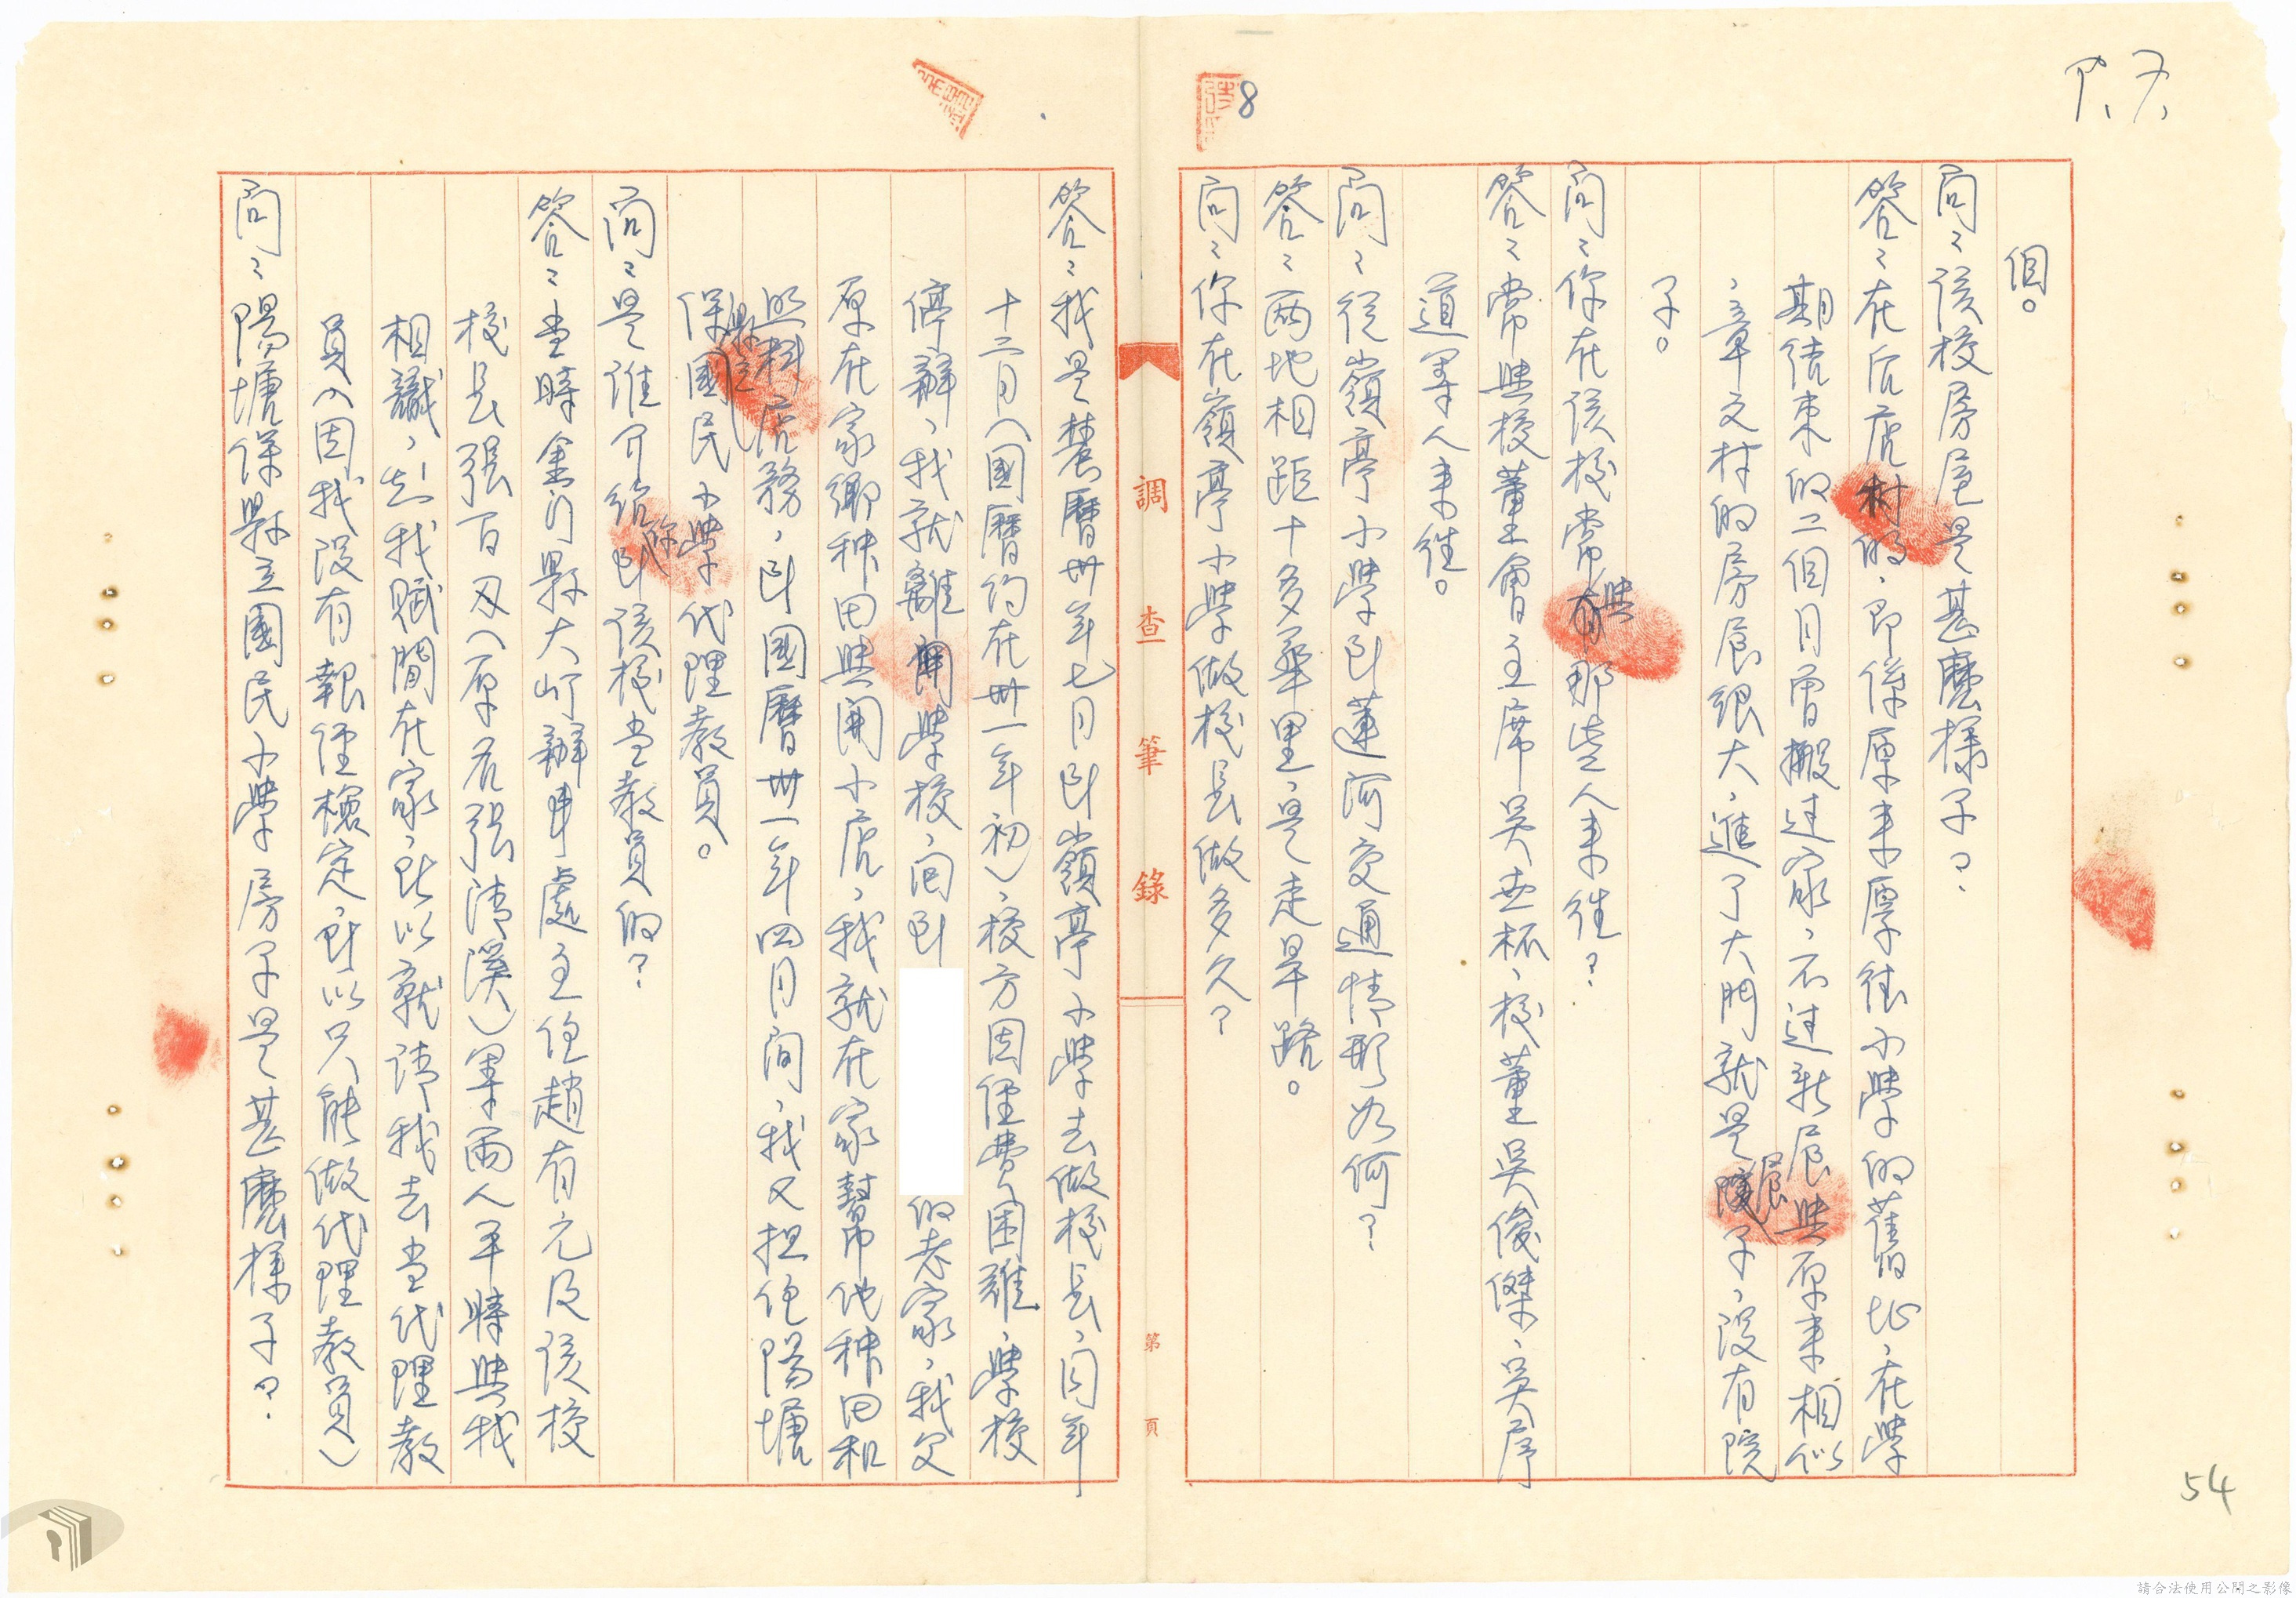 8
個。
問：該校房屋是甚麼樣子？
答：在后庒村的，即係原來厚德小學的舊址，在學
期結束的二個月曾搬过家，不过新居與原來相似
，章文村的房屋很大，進了大門就是屋子，没有院
子。
問：你在該校常與那些人來往？
答：常與校董會主席吳世杯，校董吳俊傑、吳序
道等人來往。
問：從嶺亭小學到蓮河交通情形如何？
答：兩地相距十多華里，是走旱路。
問：你在嶺亭小學做校長做多久？
調查筆錄
第頁
答：我是農曆卅年七月到嶺亭小學去做校長，同年
十二月（國曆約在卅一年初），校方因經費困難，學校
停辦，我就離開學校，回到
的老家，我父
原在家鄉种田與開小店，我就在家幫帮他种田和
照料店務，到國曆卅一年四月間，我又担任陽塘
保縣立國民小學代理教員。
問：是誰介紹你到該校当教員的？
答：当時金門縣大嶝辦事處主任趙有元及該校
校長張百忍（原名張清溪）等兩人平時與我
相識，知我賦閒在家，所以就請我去当代理教
員（因我没有報經檢定，所以只能做代理教員）
問：陽塘保縣立國民小學房子是甚麼樣子？
54
請合法使用公開之影像